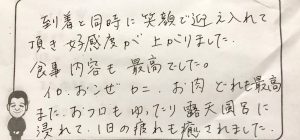 到着と同時に笑顔で迎え入れて
頂き好感度が上がりました。
食事内容も最高でした。
お肉どれも最高
また、おフロもゆったり露天風呂に
浸れて、1日の疲れも癒されました。